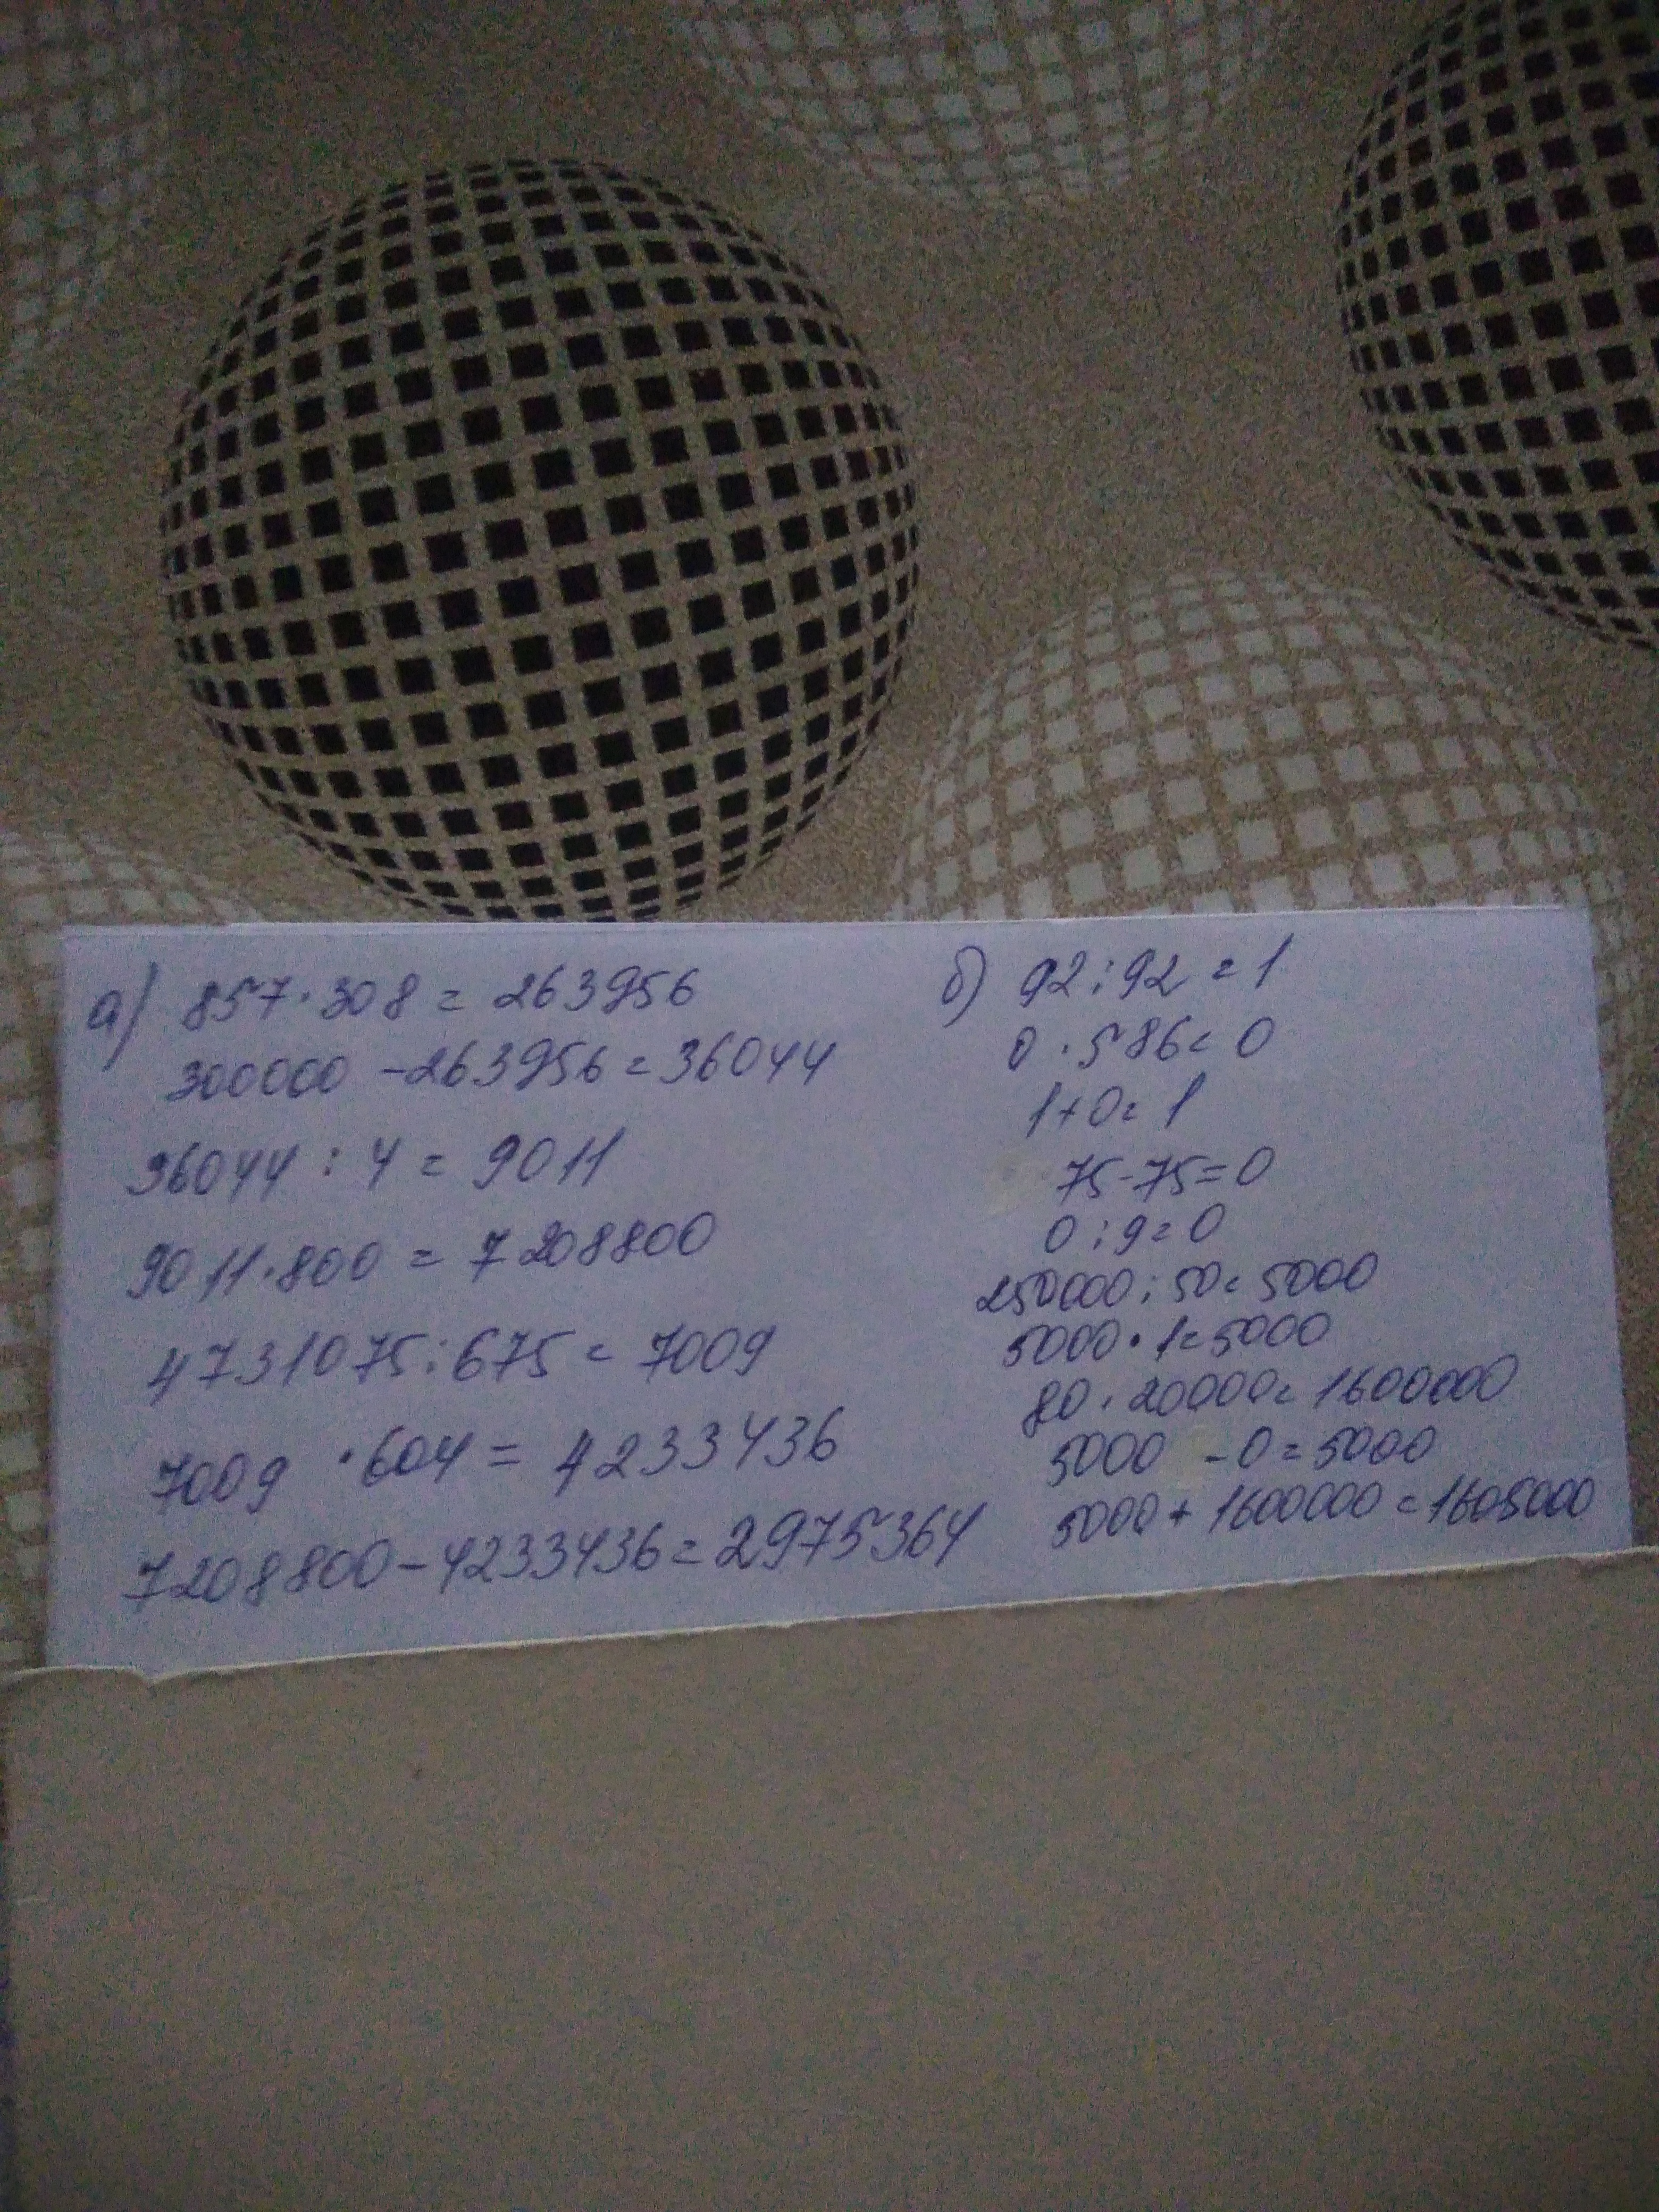 а) 857·308=263956
300000-263956=36044
36044:4=9011
9011·800=7208800
4731075:675=7009
7009·604=4233436
7208800-4233436=2975364
б) 92:92=1
0·586=0
1+0=1
75-75=0
0:9=0
250000:50=5000
5000·1=5000
80·20000=1600000
5000-0=5000
5000+1600000=1605000